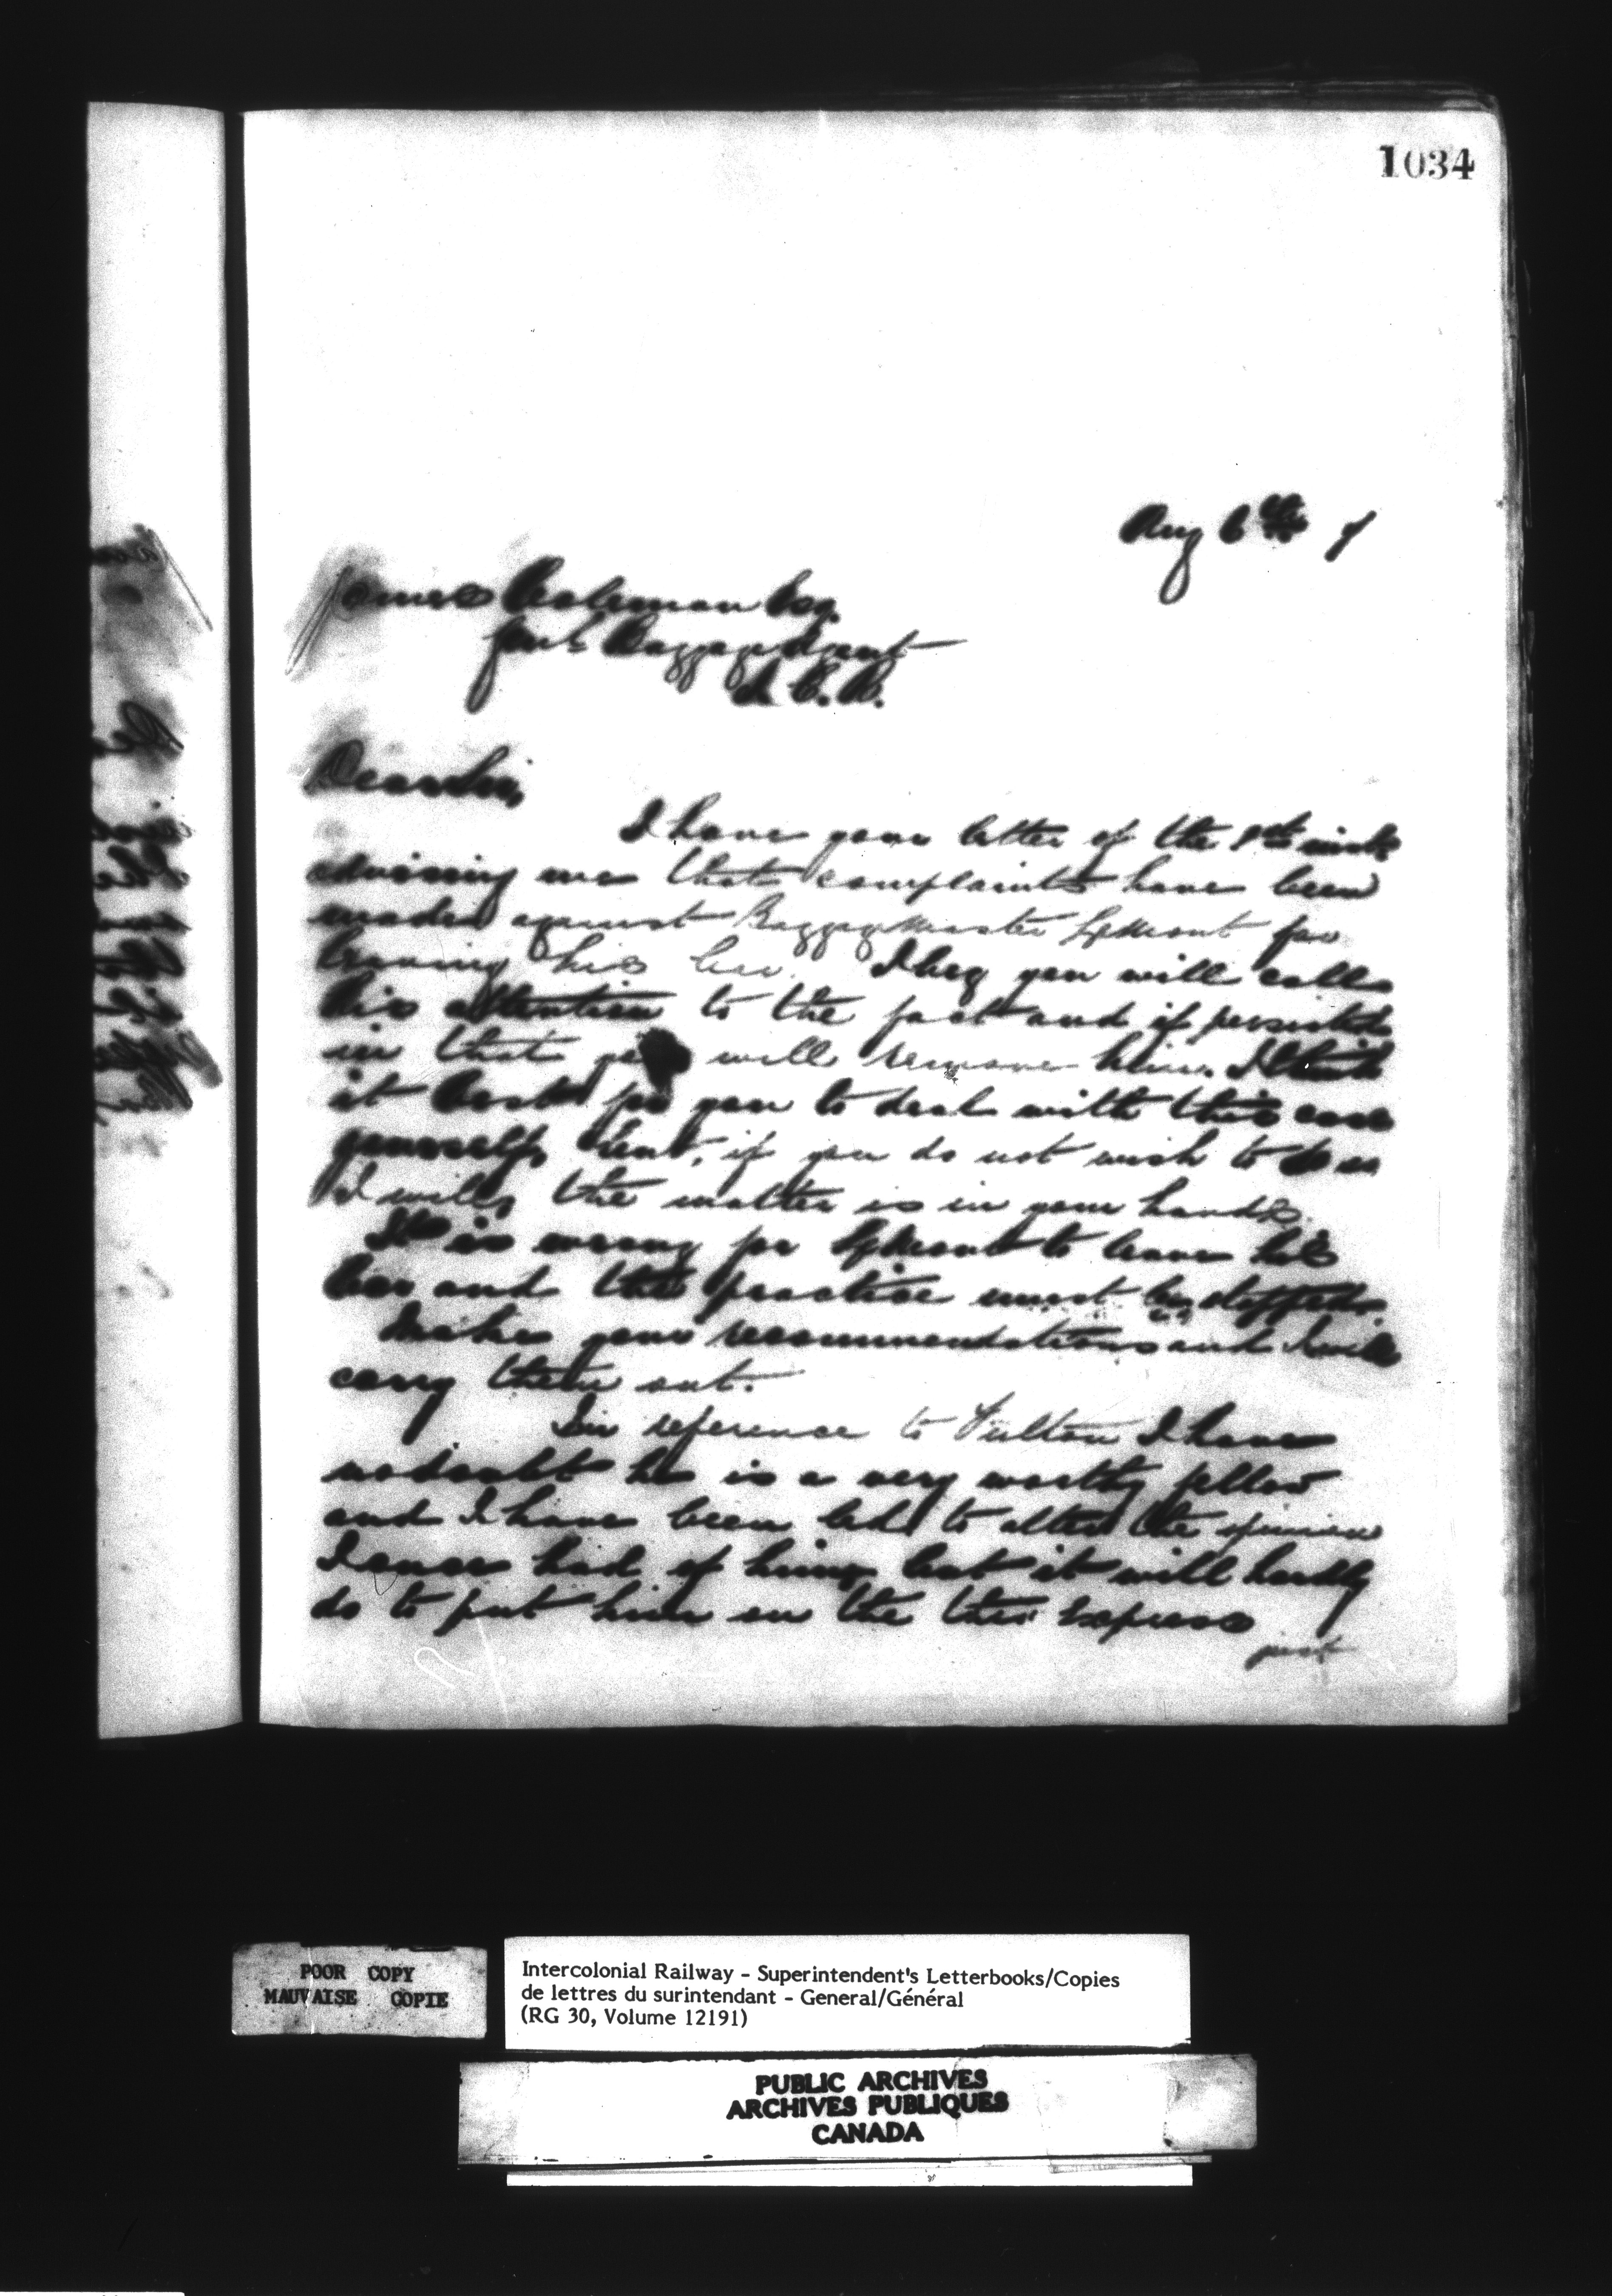 1034
Aug 6th 7
James Coleman Esq.
Genl Baggage Agent
I. C. R.
Dear Sir,
I have your letter of the inst
advising me that complaints have been
made against Baggage Master for
leaving his Car. I beg you will call
his attention to the fact and if persisted
in that you will remove him. I think
it best for you to deal with this case
yourself, but, if you do not wish to do so
I will, the matter is in your hands.
It is wrong for to leave his
Car and the practice must be stopped.
Make your recommendations and I will
carry them out.
In reference to Fulton I have
no doubt he is a very worthy fellow
and I have been led to alter the opinion
I once had of him, but it will hardly
do to put him on the Express
just
POOR COPY
MAUVAISE COPIE
Intercolonial Railway - Superintendent's Letterbooks/Copies
de lettres du surintendant - General/Général
(RG 30, Volume 12191)
PUBLIC ARCHIVES
ARCHIVES PUBLIQUES
CANADA